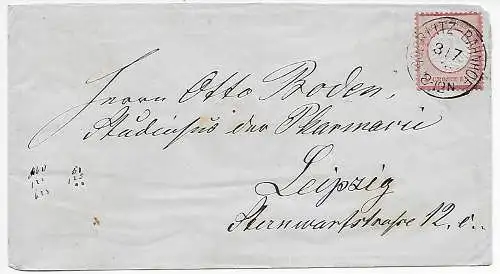 GÖRLITZ-BAHNHOF
31 7
8-12N
Herrn Otto Boden,
Studiosus der Pharmacie
Leipzig
Sternwartstrasse 12,